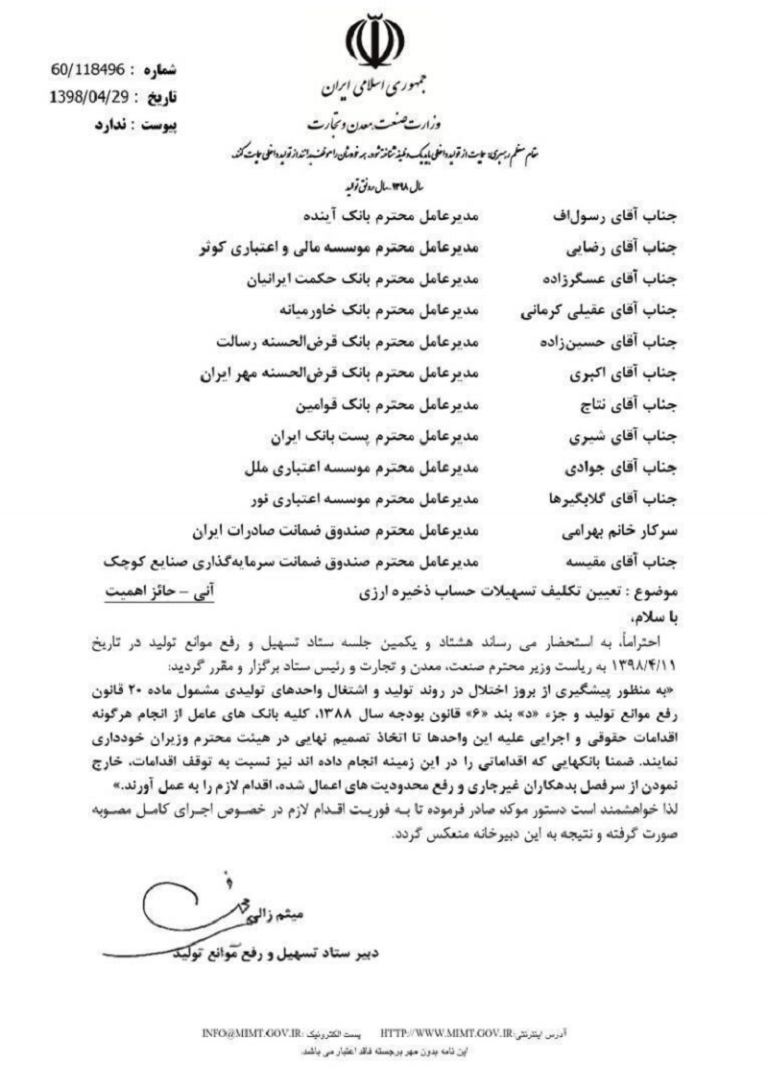 جمهوری اسلامی ایران
وزارت صنعت، معدن و تجارت
شماره : 60/118496
تاریخ : 1398/04/29
پیوست : ندارد
مقام معظم رهبری: حمایت از تولید داخلی باید یک وظیفه شناخته شود، همه خودشان را موظف بدانند از تولید داخلی حمایت کنند.
سال ۱۳۹۸، سال رونق تولید
جناب آقای رسول‌اف مدیرعامل محترم بانک آینده
جناب آقای رضایی مدیرعامل محترم موسسه مالی و اعتباری کوثر
جناب آقای عسگرزاده مدیرعامل محترم بانک حکمت ایرانیان
جناب آقای عقیلی کرمانی مدیرعامل محترم بانک خاورمیانه
جناب آقای حسین‌زاده مدیرعامل محترم بانک قرض‌الحسنه رسالت
جناب آقای اکبری مدیرعامل محترم بانک قرض‌الحسنه مهر ایران
جناب آقای نتاج مدیرعامل محترم بانک قوامین
جناب آقای شیری مدیرعامل محترم پست بانک ایران
جناب آقای جوادی مدیرعامل محترم موسسه اعتباری ملل
جناب آقای گلابگیرها مدیرعامل محترم موسسه اعتباری نور
سرکار خانم بهرامی مدیرعامل محترم صندوق ضمانت صادرات ایران
جناب آقای مقیسه مدیرعامل محترم صندوق ضمانت سرمایه‌گذاری صنایع کوچک
موضوع : تعیین تکلیف تسهیلات حساب ذخیره ارزی آنی – حائز اهمیت
با سلام،
احتراماً، به استحضار می رساند هشتاد و یکمین جلسه ستاد تسهیل و رفع موانع تولید در تاریخ
۱۳۹۸/۴/۱۱ به ریاست وزیر محترم صنعت، معدن و تجارت و رئیس ستاد برگزار و مقرر گردید:
«به منظور پیشگیری از بروز اختلال در روند تولید و اشتغال واحدهای تولیدی مشمول ماده ۲۰ قانون
رفع موانع تولید و جزء «د» بند «۶» قانون بودجه سال ۱۳۸۸، کلیه بانک های عامل از انجام هرگونه
اقدامات حقوقی و اجرایی علیه این واحدها تا اتخاذ تصمیم نهایی در هیئت محترم وزیران خودداری
نمایند. ضمنا بانکهایی که اقداماتی را در این زمینه انجام داده اند نیز نسبت به توقف اقدامات، خارج
نمودن از سرفصل بدهکاران غیرجاری و رفع محدودیت های اعمال شده، اقدام لازم را به عمل آورند.»
لذا خواهشمند است دستور موکد صادر فرموده تا به فوریت اقدام لازم در خصوص اجرای کامل مصوبه
صورت گرفته و نتیجه به این دبیرخانه منعکس گردد.
میثم زالی
دبیر ستاد تسهیل و رفع موانع تولید
آدرس اینترنتی:HTTP://WWW.MIMT.GOV.IR پست الکترونیک :INFO@MIMT.GOV.IR
این نامه بدون مهر برجسته فاقد اعتبار می باشد.